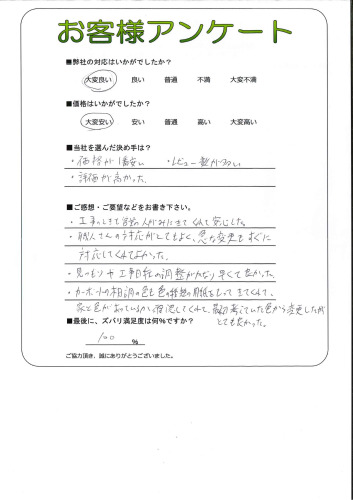 お客様アンケート
■弊社の対応はいかがでしたか？
大変良い 良い 普通 不満 大変不満
■価格はいかがでしたか？
大変安い 安い 普通 高い 大変高い
■当社を選んだ決め手は？
・価格が1番安い ・レビュー数が多い
・評価が高かった。
■ご感想・ご要望などをお書き下さい。
・工事のしきて 人がみにきてくれて安心した。
・職人さんの対応がとてもよく、急な変更もすぐに
対応してくれてよかった。
・見つもりや工事日程の調整がかなり早くて良かった。
・カーポートの柱の色も色の種類の用紙をもってきてくれて、
家と色があっているか確認してくれて、最初考えていた色から変更したが
とても良かった。
■最後に、ズバリ満足度は何％ですか？
100 ％
ご協力頂き、誠にありがとうございました。